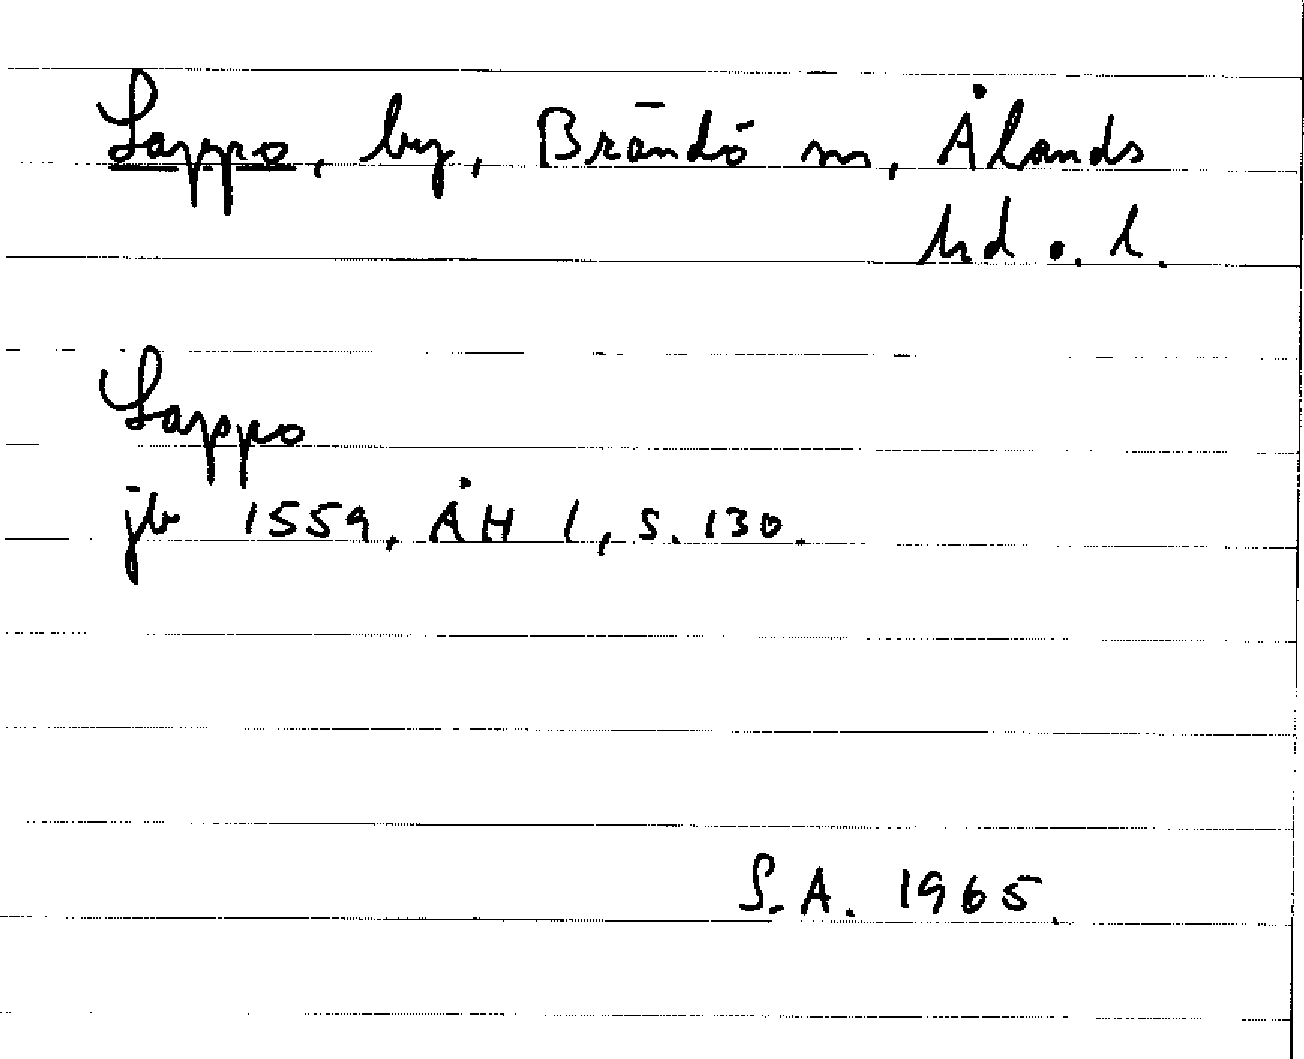 Lappo, by, Brändö sn, Ålands
hd o. l.
Lappo
jb 1559, ÅH 1, s. 130.
S.A. 1965.